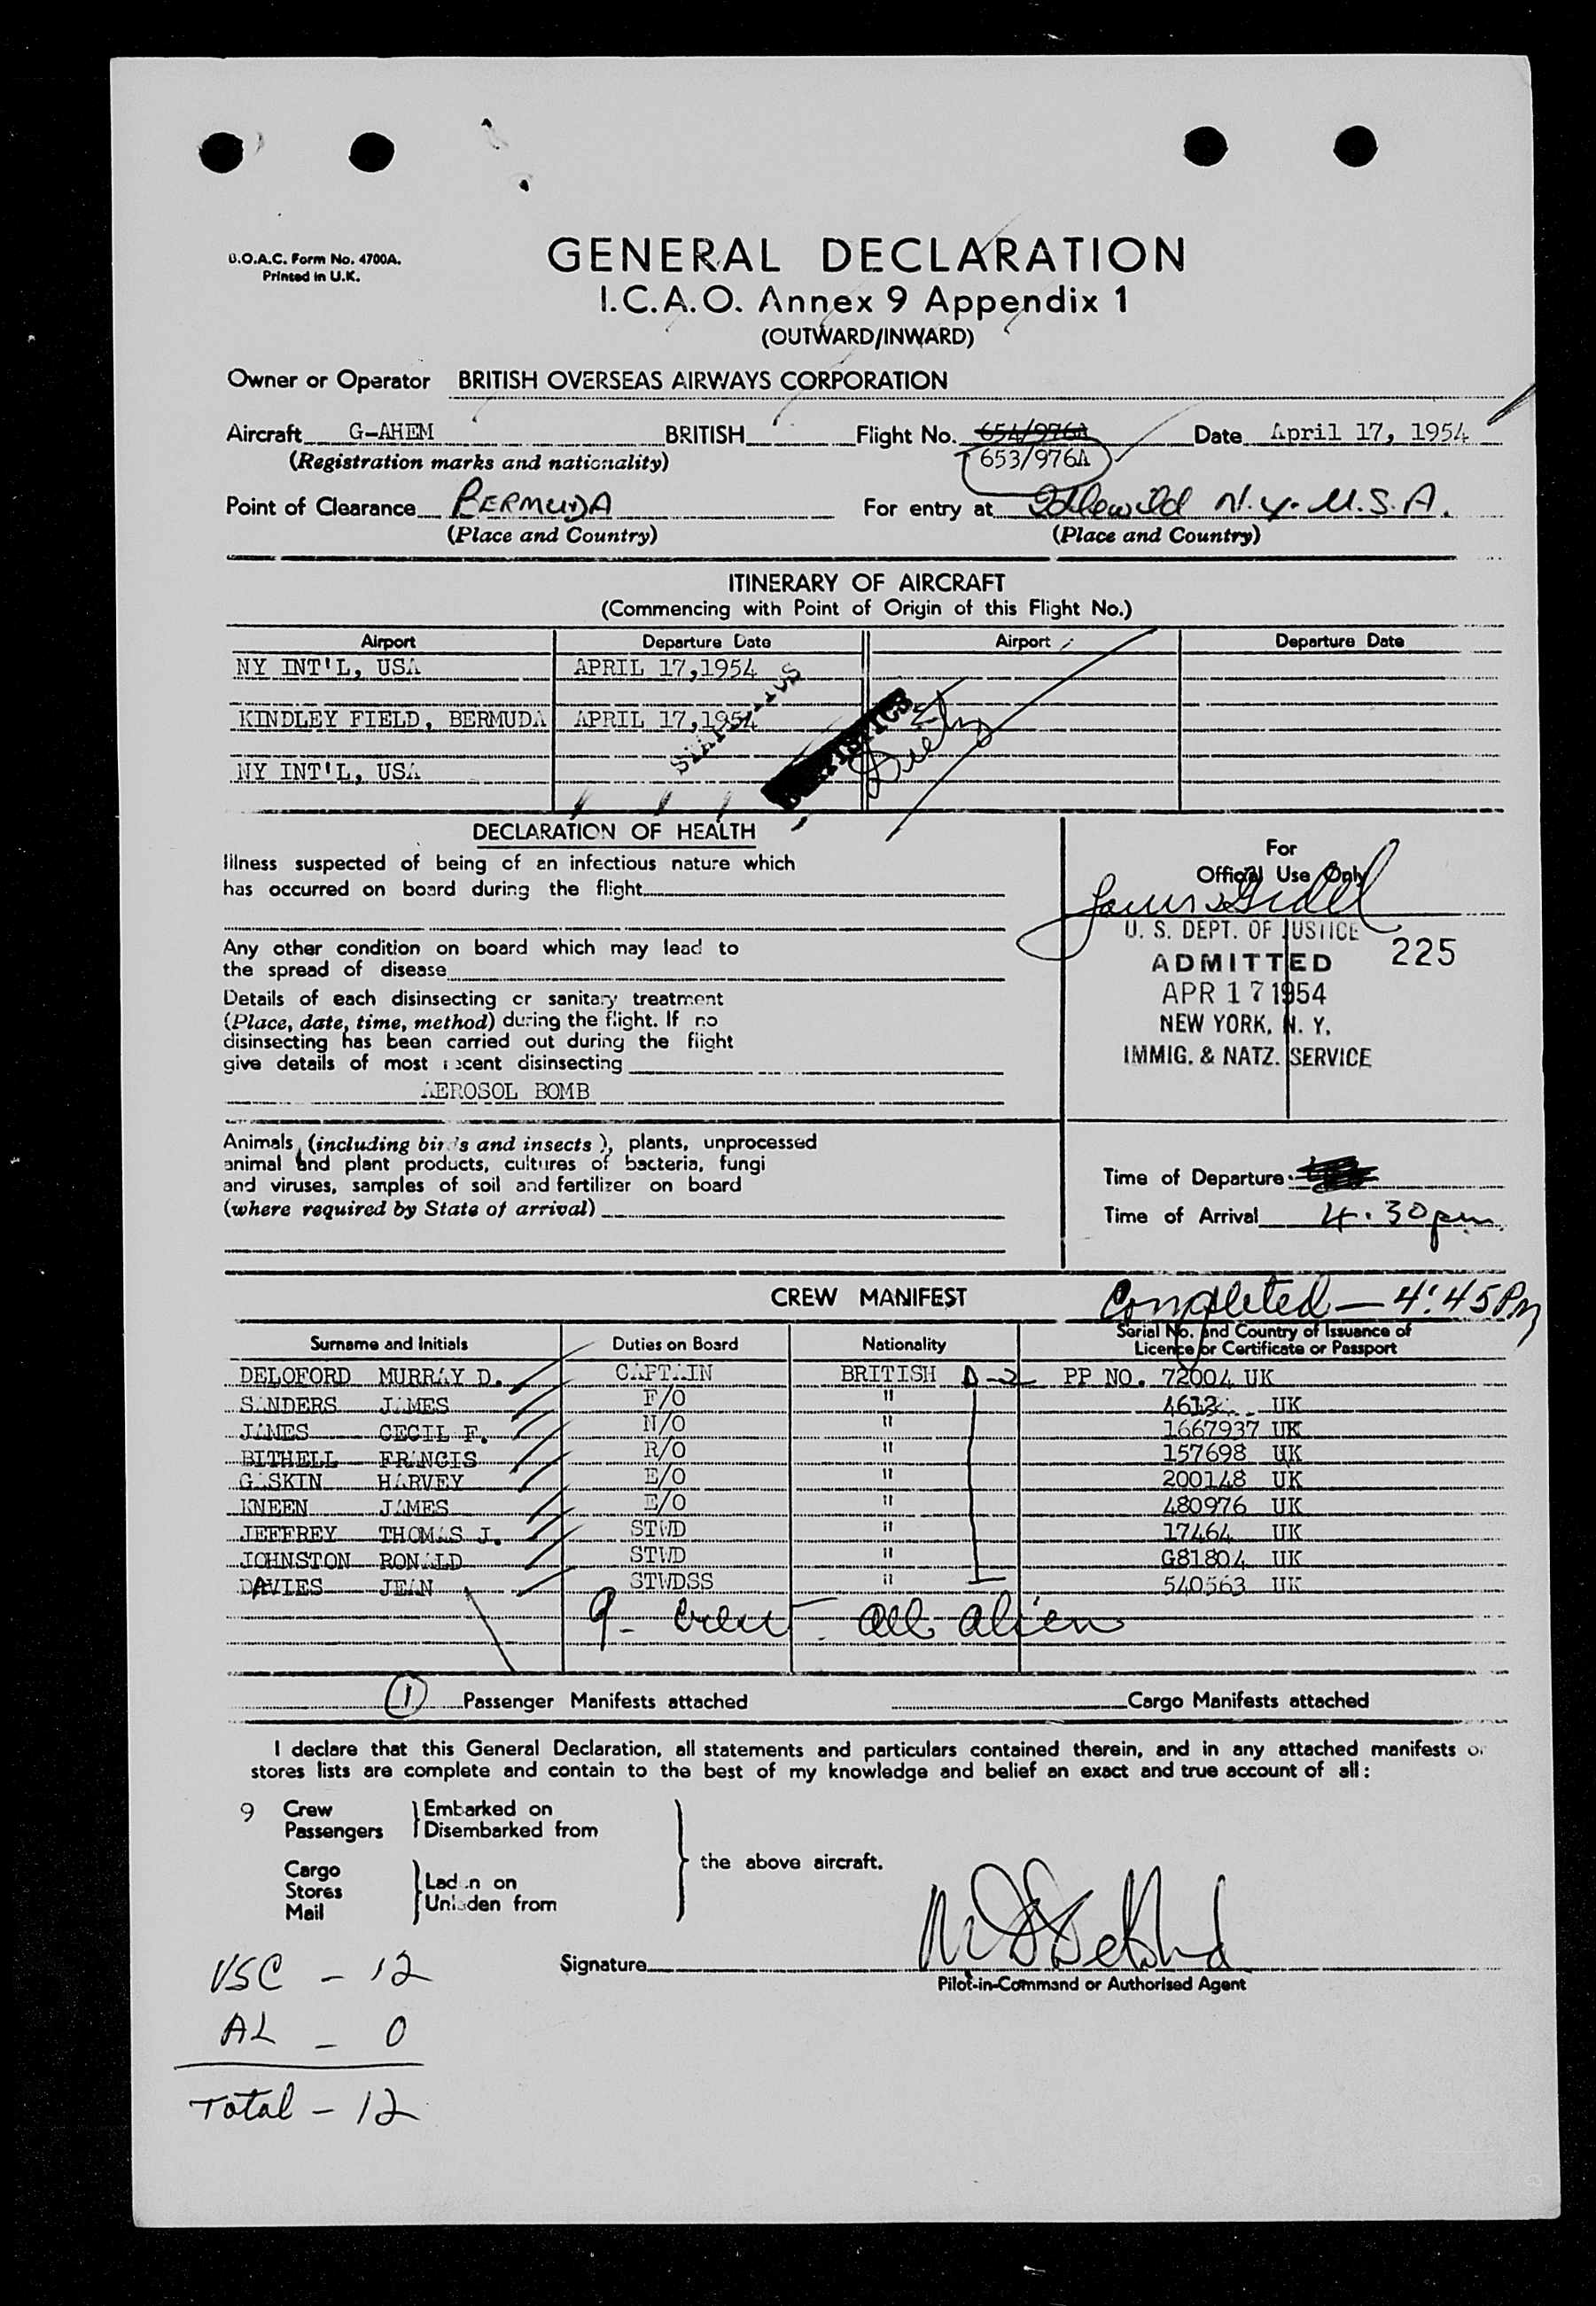 B.O.A.C. Form No. 4700A.
Printed in U.K.
GENERAL DECLARATION
I.C.A.O. Annex 9 Appendix 1
(OUTWARD/INWARD)
Owner or Operator BRITISH OVERSEAS AIRWAYS CORPORATION
Aircraft G-AHEM BRITISH Flight No. 654/976A Date April 17, 1954
(Registration marks and nationality) 653/976A
Point of Clearance BERMUDA For entry at Idlewild N.Y. U.S.A.
(Place and Country) (Place and Country)
ITINERARY OF AIRCRAFT
(Commencing with Point of Origin of this Flight No.)
Airport Departure Date Airport Departure Date
NY INT'L, USA APRIL 17,1954
STATISTICS
KINDLEY FIELD, BERMUDA APRIL 17,1954
NY INT'L, USA
DECLARATION OF HEALTH
Illness suspected of being of an infectious nature which
has occurred on board during the flight
Any other condition on board which may lead to
the spread of disease
Details of each disinsecting or sanitary treatment
(Place, date, time, method) during the flight. If no
disinsecting has been carried out during the flight
give details of most recent disinsecting
AEROSOL BOMB
Animals (including birds and insects), plants, unprocessed
animal and plant products, cultures of bacteria, fungi
and viruses, samples of soil and fertilizer on board
(where required by State of arrival)
For
Official Use Only
U. S. DEPT. OF JUSTICE 225
ADMITTED
APR 17 1954
NEW YORK, N. Y.
IMMIG. & NATZ. SERVICE
Time of Departure
Time of Arrival 4.30pm
CREW MANIFEST Completed — 4:45 PM
Surname and Initials Duties on Board Nationality Serial No. and Country of Issuance of Licence or Certificate or Passport
DELOFORD MURRAY D. CAPTAIN BRITISH D-2 PP NO. 72004 UK
SANDERS JAMES F/O " 4612 UK
JAMES CECIL F. N/O " 1667937 UK
BITHELL FRANCIS R/O " 157698 UK
GASKIN HARVEY E/O " 200148 UK
KNEEN JAMES E/O " 480976 UK
JEFFREY THOMAS J. STWD " 17464 UK
JOHNSTON RONALD STWD " G81804 UK
DAVIES JEAN STWDSS " 540563 UK
9 - Crew - all alien
1 Passenger Manifests attached Cargo Manifests attached
I declare that this General Declaration, all statements and particulars contained therein, and in any attached manifests or
stores lists are complete and contain to the best of my knowledge and belief an exact and true account of all:
9 Crew Embarked on
Passengers Disembarked from
the above aircraft.
Cargo
Stores Laden on
Mail Unladen from
Signature
Pilot-in-Command or Authorised Agent
USC - 12
AL - 0
Total - 12